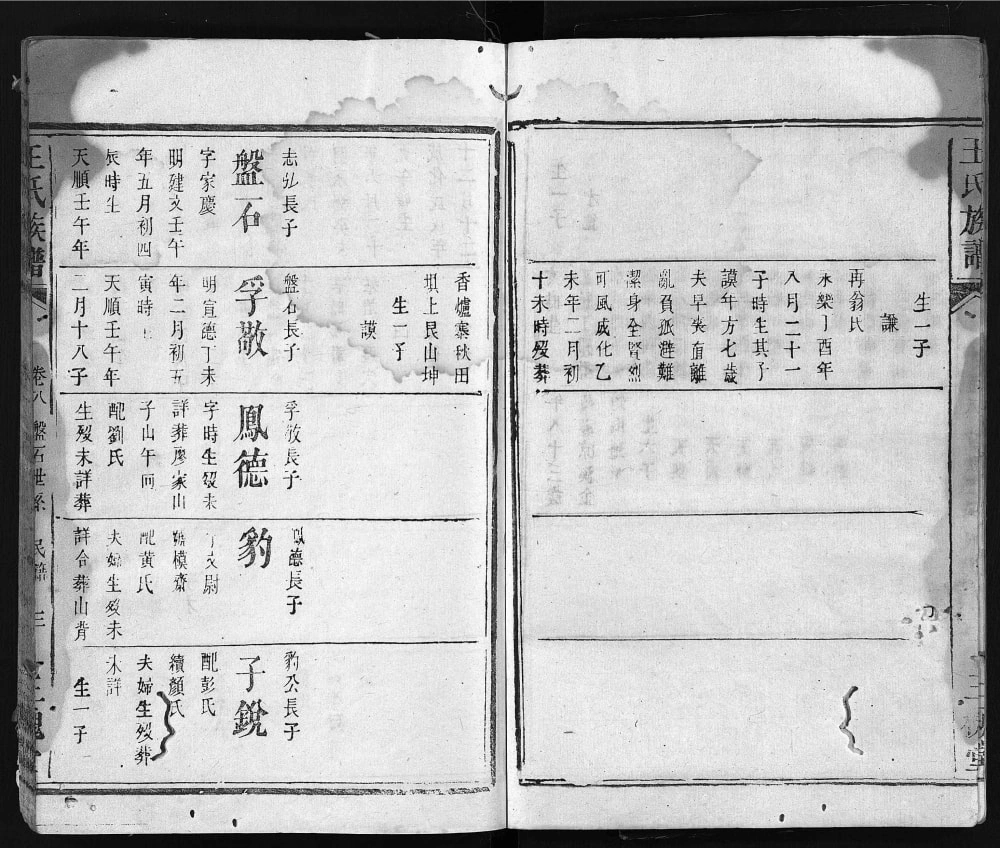 王氏族譜
三槐堂
生一子
謙
再翁氏
永樂丁酉年
八月二十一
子時生其子
謨年方七歲
夫早喪有離
亂負孤避難
潔身全賢烈
可風咸化乙
未年二月初
十未時歿葬
香爐寨秋田
垻上艮山坤
生一子
謨
志弘長子
盤石
字家慶
明建文壬午
年五月初四
辰時生
天順壬午年
盤石長子
孚敬
明宣德丁未
年二月初五
寅時
天順壬午年
二月十八子
孚敬長子
鳳德
字時生歿未
詳葬廖家山
子山午向
配劉氏
生歿未詳葬
德長子
豹
文尉
號模齋
配黃氏
夫婦生歿未
詳合葬山背
豹公長子
子銳
配彭氏
續顏氏
夫婦生歿葬
未詳
生一子
王氏族譜
卷八
盤石世系
民籍
三